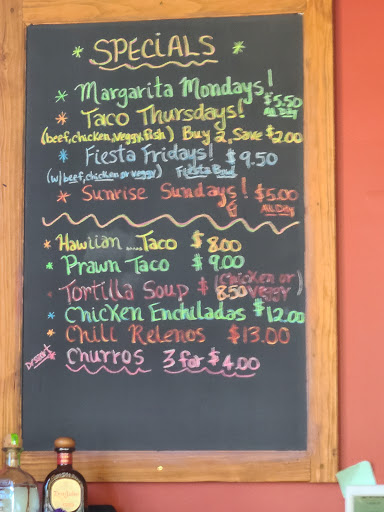 * SPECiALS *
* Margarita Mondays! $5.50 All Day
* Taco Thursdays!
(beef, chicken, veggy, fish) Buy 2, Save $2.00
* Fiesta Fridays! $9.50
(w/ beef, chicken or veggy) Fiesta Bowl
* Sunrise Sundays! $5.00 All Day
* Hawiian....Taco $8.00
* Prawn Taco $9.00
* Tortilla Soup $8.50 (Chicken or Veggy)
* Chicken Enchiladas $12.00
* Chili Relenos $13.00
Desert * Churros 3 for $4.00